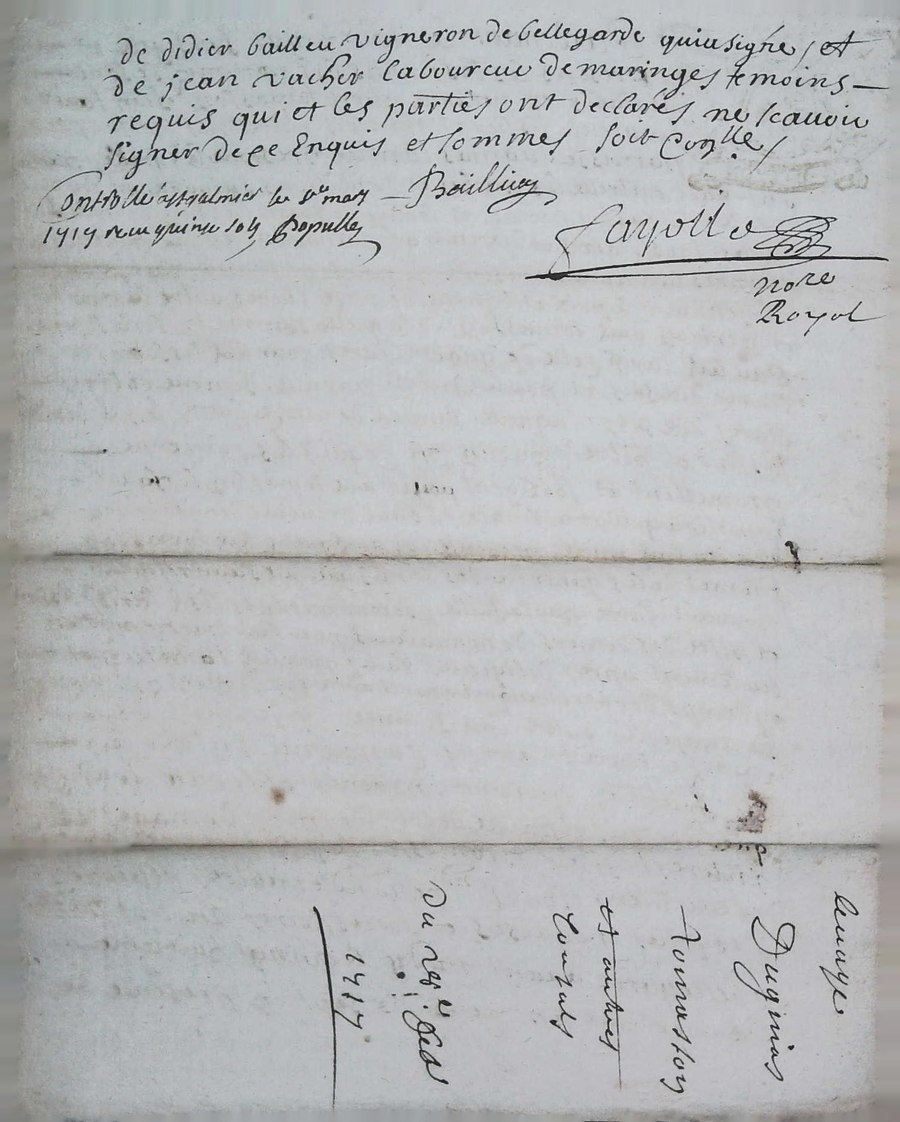 de didier bailleu vigneron de bellegarde qui a signé, et
de jean vacher laboureur de maringes temoins
requis qui et les parties ont declarés ne scavoir
signer de ce Enquis et sommes soit Conlle.
Baillieu
Controllé a st galmier le 8e mars
1717 receu quinze sols Populle
fayolle
nore
Royal
Duguias
et autres
Consuls
du 28e feb
1717